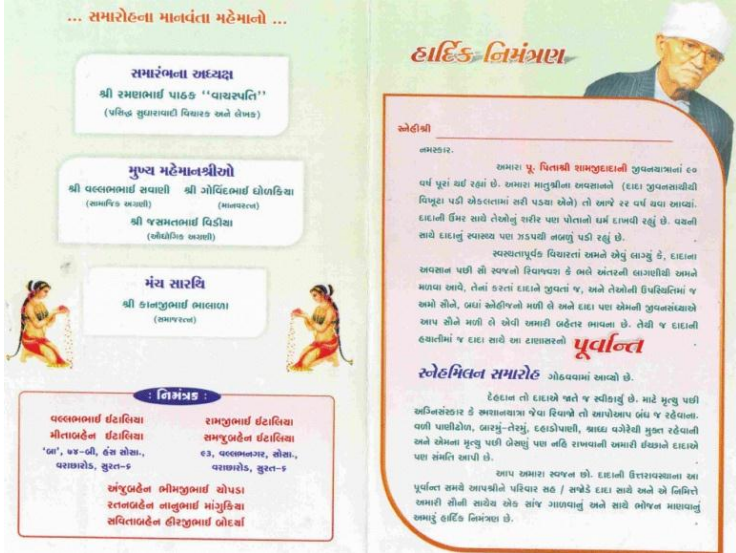 ... સમારોહના માનવંતા મહેમાનો ...
સમારંભના અધ્યક્ષ
શ્રી રમણભાઈ પાઠક ‘‘વાચસ્પતિ’’
(પ્રસિદ્ધ સુધારાવાદી વિચારક અને લેખક)
મુખ્ય મહેમાનશ્રીઓ
શ્રી વલ્લભભાઈ સવાણી શ્રી ગોવિંદભાઈ ધોળકિયા
(સામાજિક અગ્રણી) (માનવરત્ન)
શ્રી જસમતભાઈ વિડીયા
(ઔદ્યોગિક અગ્રણી)
મંચ સારથિ
શ્રી કાનજીભાઈ ભાલાળા
(સમાજરત્ન)
: નિમંત્રક :
વલ્લભભાઈ ઈટાલિયા
મીતાબહેન ઈટાલિયા
‘બા’, ૭૪-બી, હંસ સોસા.,
વરાછારોડ, સુરત-૬
રામજીભાઈ ઈટાલિયા
સમજુબહેન ઈટાલિયા
૯૩, વલ્લભનગર, સોસા.,
વરાછારોડ, સુરત-૬
અંજુબહેન ભીમજીભાઈ ચોપડા
રતનબહેન નાનુભાઈ માંગુકિયા
સવિતાબહેન હીરજીભાઈ બોદર્યા
હાર્દિક નિમંત્રણ
સ્નેહીશ્રી
નમસ્કાર.
અમારા પૂ. પિતાશ્રી શામજીદાદાની જીવનયાત્રાનાં ૯૦
વર્ષ પૂરાં થઈ રહ્યાં છે. અમારા માતુશ્રીના અવસાનને (દાદા જીવનસાથીથી
વિખૂટા પડી એકલતામાં સરી પડ્યા એને) તો આજે ૨૨ વર્ષ થવા આવ્યાં.
દાદાની ઉંમર સાથે તેઓનું શરીર પણ પોતાનો ધર્મ દાખવી રહ્યું છે. વયની
સાથે દાદાનું સ્વાસ્થ્ય પણ ઝડપથી નબળું પડી રહ્યું છે.
સ્વસ્થતાપૂર્વક વિચારતાં અમને એવું લાગ્યું કે, દાદાના
અવસાન પછી સૌ સ્વજનો રિવાજવશ કે ભલે અંતરની લાગણીથી અમને
મળવા આવે, તેનાં કરતાં દાદાને જીવતાં જ, અને તેઓની ઉપસ્થિતિમાં જ
અમો સૌને, બધાં સ્નેહીજનો મળી લે અને દાદા પણ એમની જીવનસંધ્યાએ
આપ સૌને મળી લે એવી અમારી બહેતર ભાવના છે. તેથી જ દાદાની
હયાતીમાં જ દાદા સાથે આ ટાણાસરનો પૂર્વાન્ત
સ્નેહમિલન સમારોહ ગોઠવવામાં આવ્યો છે.
દેહદાન તો દાદાએ જાતે જ સ્વીકાર્યું છે. માટે મૃત્યુ પછી
અગ્નિસંસ્કાર કે સ્મશાનયાત્રા જેવા રિવાજો તો આપોઆપ બંધ જ રહેવાના.
વળી પાણીઢોળ, બારમું-તેરમું, દહાડોપાણી, શ્રાદ્ધ વગેરેથી મુક્ત રહેવાની
અને એમના મૃત્યુ પછી બેસણું પણ નહિ રાખવાની અમારી ઈચ્છાને દાદાએ
પણ સંમતિ આપી છે.
આપ અમારા સ્વજન છો. દાદાની ઉત્તરાવસ્થાના આ
પૂર્વાન્ત સમયે આપશ્રીને પરિવાર સહ / સજોડે દાદા સાથે અને એ નિમિત્તે
અમારી સૌની સાથેય એક સાંજ ગાળવાનું અને સાથે ભોજન માણવાનું
અમારું હાર્દિક નિમંત્રણ છે.